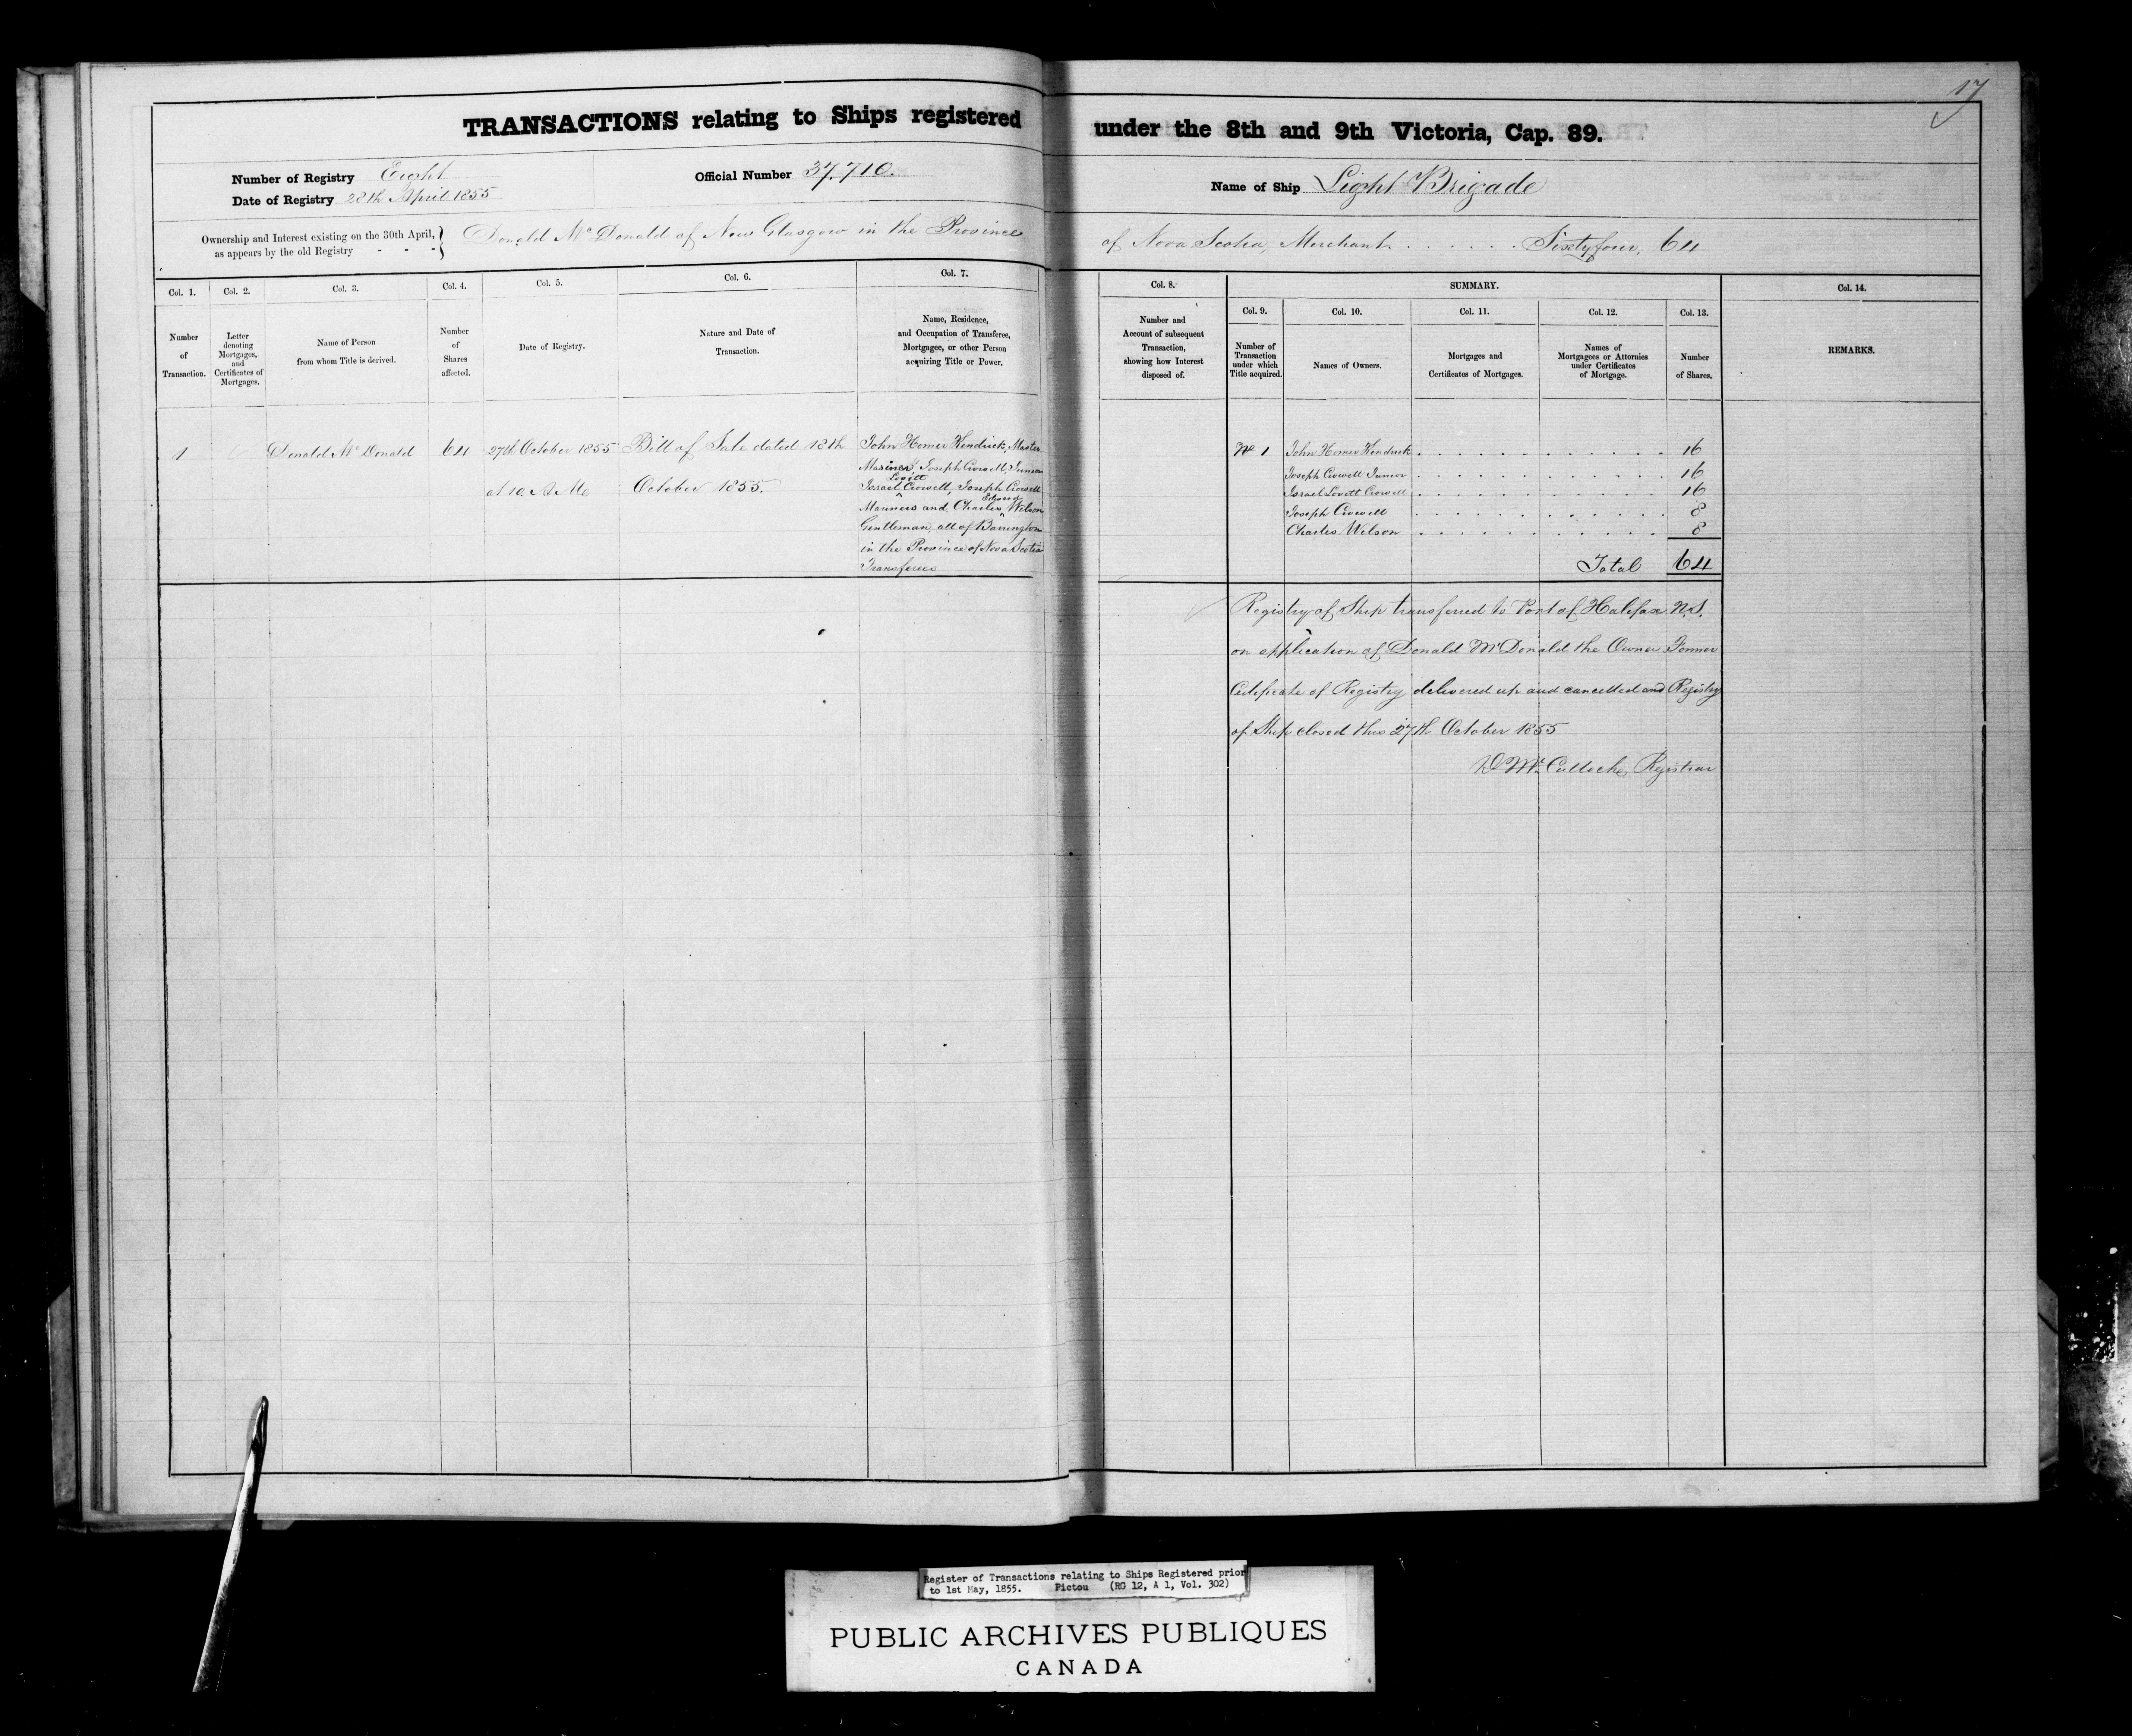 17
TRANSACTIONS relating to Ships registered under the 8th and 9th Victoria, Cap. 89.
Number of Registry Eight
Date of Registry 28th April 1855
Official Number 37.710.
Name of Ship Light Brigade
Ownership and Interest existing on the 30th April, as appears by the old Registry - - - } Donald McDonald of New Glasgow in the Province of Nova Scotia, Merchant . . . . . . Sixty four, 64
Col. 1.
Number
of
Transaction.
Col. 2.
Letter
denoting
Mortgages,
and
Certificates of
Mortgages.
Col. 3.
Name of Person
from whom Title is derived.
Col. 4.
Number
of
Shares
affected.
Col. 5.
Date of Registry.
Col. 6.
Nature and Date of
Transaction.
Col. 7.
Name, Residence,
and Occupation of Transferee,
Mortgagee, or other Person
acquiring Title or Power.
Col. 8.
Number and
Account of subsequent
Transaction,
showing how Interest
disposed of.
SUMMARY.
Col. 9.
Number of
Transaction
under which
Title acquired.
Col. 10.
Names of Owners.
Col. 11.
Mortgages and
Certificates of Mortgages.
Col. 12.
Names of
Mortgagees or Attornies
under Certificates
of Mortgage.
Col. 13.
Number
of Shares.
Col. 14.
REMARKS.
1
Donald McDonald
64
27th October 1855
at 10. A Mc
Bill of Sale dated 18th
October 1855.
John Homer Kendrick, Master
Mariner, Joseph Crowell, Junior
Israel Lovitt Crowell, Joseph Crowell
Mariners and Charles Edward Wilson
Gentleman, all of Barrington
in the Province of Nova Scotia
Transferees
No 1
John Homer Kendrick . . . . . . . . . . . . 16
Joseph Crowell Junior . . . . . . . . . . . . 16
Israel Lovett Crowell . . . . . . . . . . . . 16
Joseph Crowell . . . . . . . . . . . . 8
Charles Wilson . . . . . . . . . . . . 8
Total 64
Registry of Ship transferred to Port of Halifax N.S.
on application of Donald McDonald the Owner. Former
Certificate of Registry delivered up and cancelled and Registry
of Ship closed this 27th October 1855
D McCulloch, Registrar
Register of Transactions relating to Ships Registered prior
to 1st May, 1855. Pictou (RG 12, A 1, Vol. 302)
PUBLIC ARCHIVES PUBLIQUES
CANADA